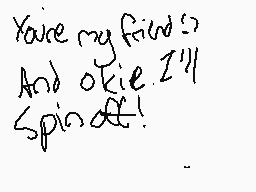 You're my friend!?
And okie. I'll
Spin off!